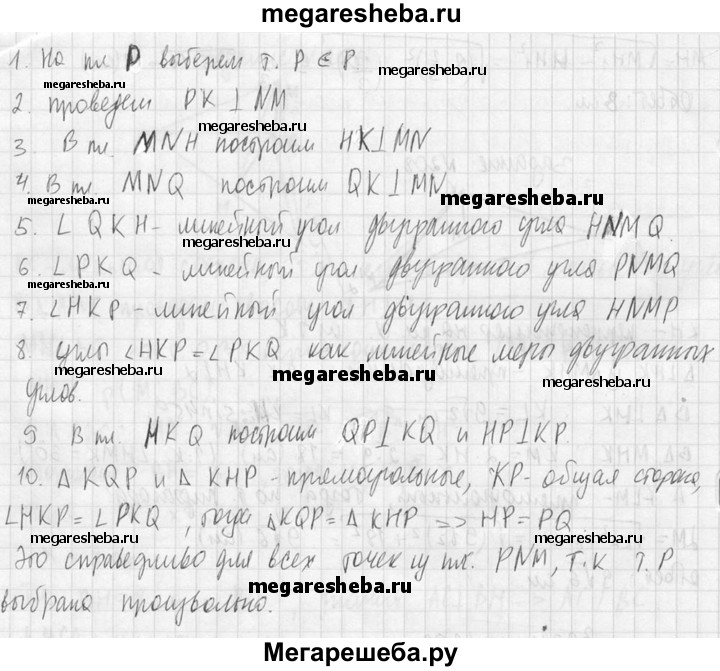 megaresheba.ru
1. На пл. P выберем т. P ∈ P.
megaresheba.ru
megaresheba.ru
2. проведем PK ⊥ NM
megaresheba.ru
3. В пл. MNH построим HK ⊥ MN
4. В пл. MNQ построим QK ⊥ MN
megaresheba.ru
megaresheba.ru
5. ∠ QKH - линейный угол двугранного угла HNMQ.
megaresheba.ru
megaresheba.ru
6. ∠ PKQ - линейный угол двугранного угла PNMQ
7. ∠HKP - линейный угол двугранного угла HNMP
8. углы ∠HKP = ∠PKQ как линейные меры двугранных
megaresheba.ru
megaresheba.ru
megaresheba.ru
углов.
9 В пл. HKQ построим QP ⊥ KQ и HP ⊥ KP.
megaresheba.ru
megaresheba.ru
10. Δ KQP и Δ KHP - прямоугольные, KP - общая сторона,
∠HKP = ∠PKQ, тогда ΔKQP = Δ KHP => HP = PQ
megaresheba.ru
megaresheba.ru
Это справедливо для всех точек из пл. PNM, т.к т. P
megaresheba.ru
выбрана произвольно.
Мегарешеба.ру